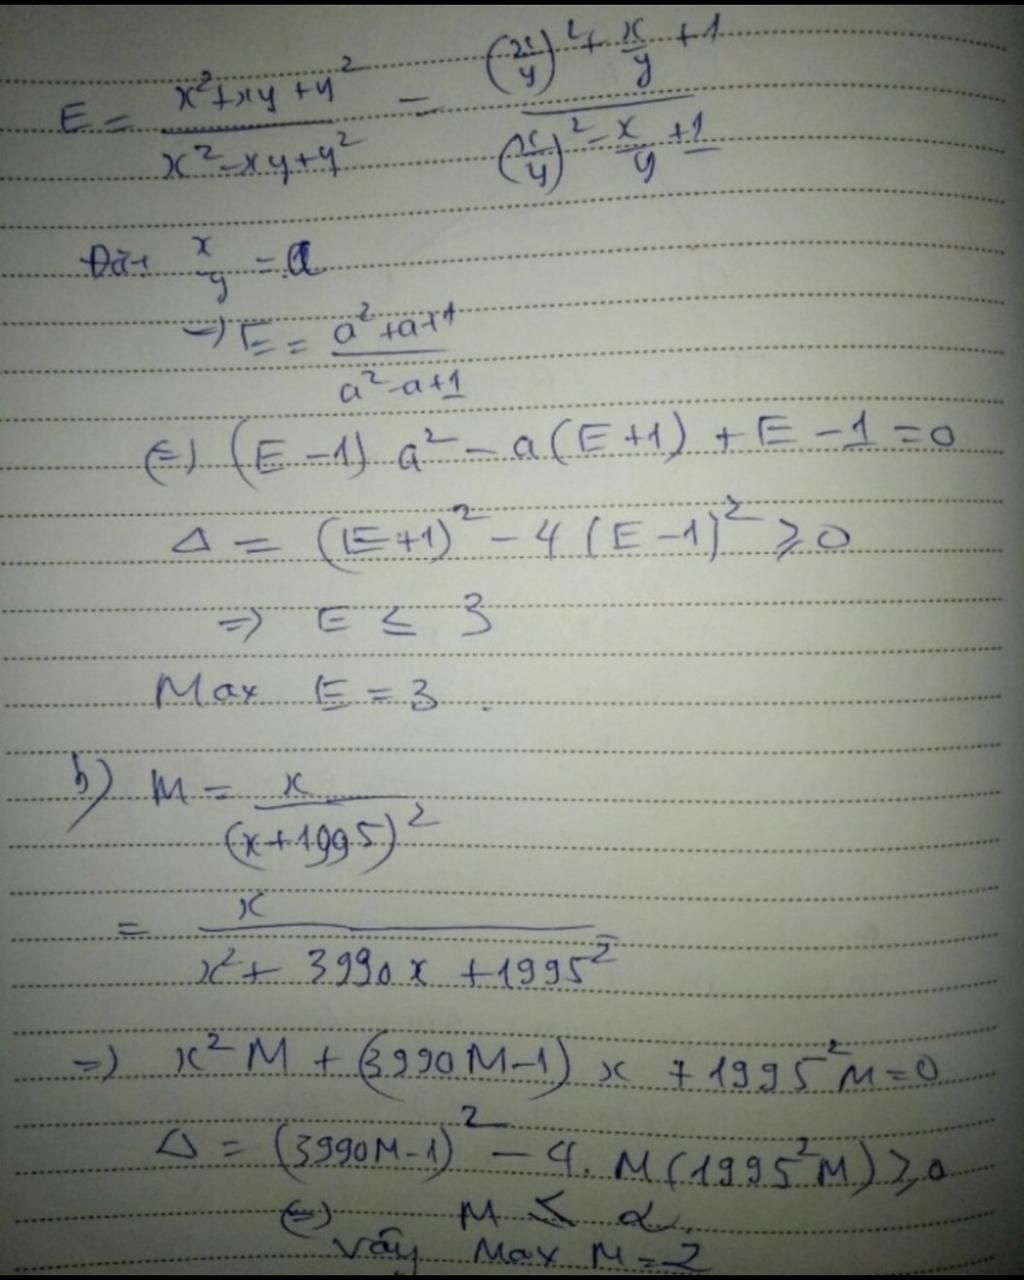 E = \frac{x^2+xy+y^2}{x^2-xy+y^2} = \frac{(\frac{x}{y})^2+\frac{x}{y}+1}{(\frac{x}{y})^2-\frac{x}{y}+1}
Đặt \frac{x}{y} = a
=> E = \frac{a^2+a+1}{a^2-a+1}
(=) (E-1) a^2 - a(E+1) + E - 1 = 0
Δ = (E+1)^2 - 4(E-1)^2 ≥ 0
=> E ≤ 3
Max E = 3.
b) M = \frac{x}{(x+1995)^2}
= \frac{x}{x^2+3990x+1995^2}
=> x^2M + (3990M-1) x + 1995^2M = 0
Δ = (3990M-1)^2 - 4.M(1995^2M) ≥ 0
(=) M ≤
vậy Max M = 2